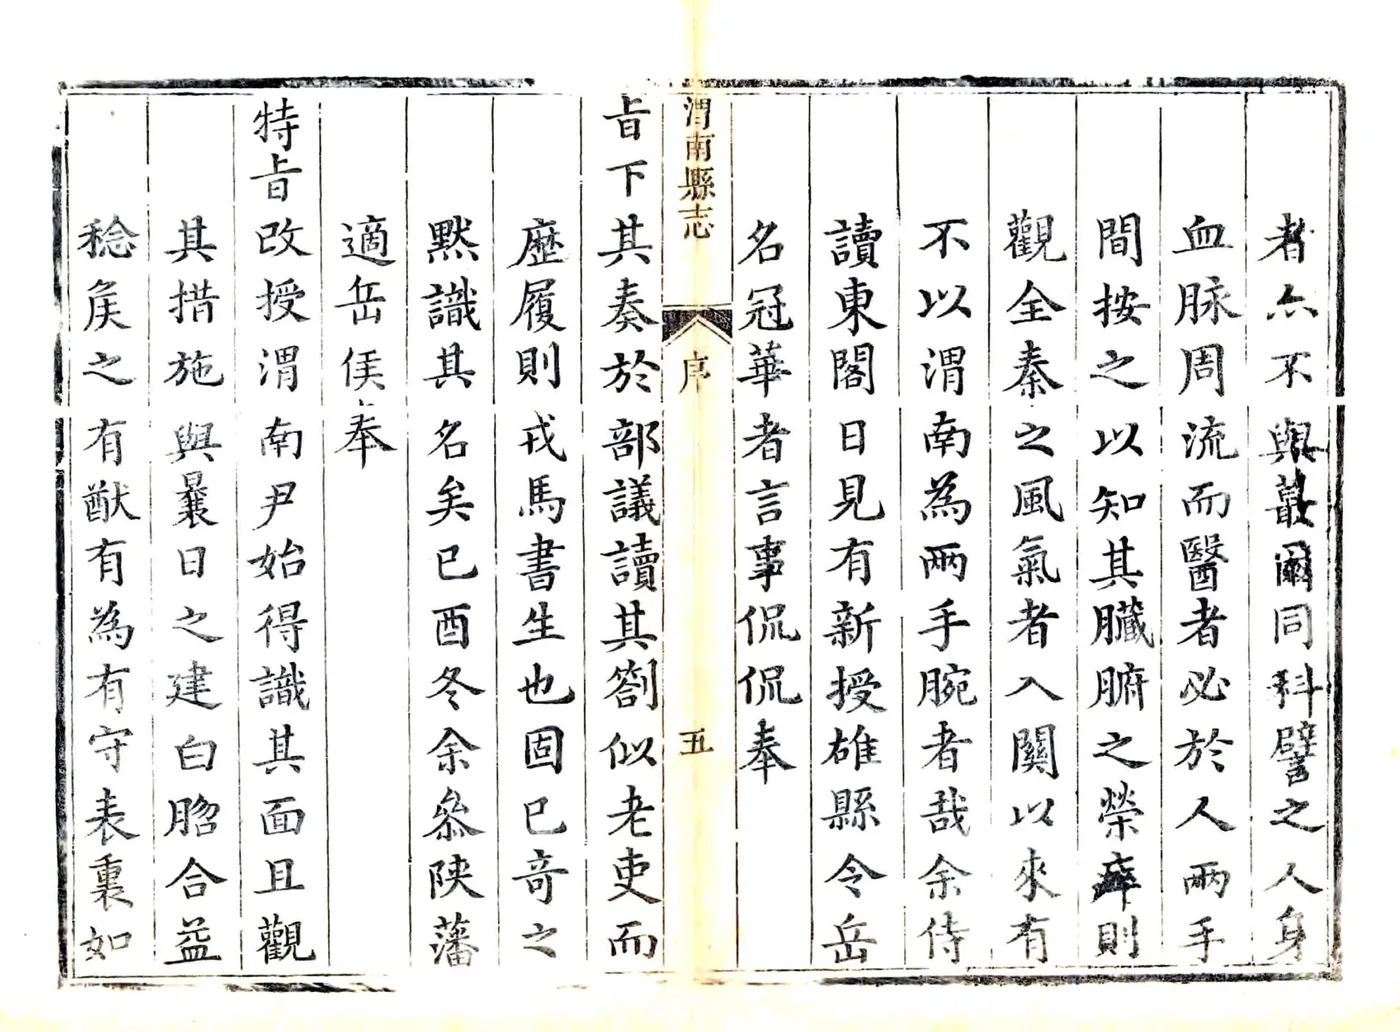 者亦不與蕞爾同科譬之人身
血脉周流而醫者必於人兩手
間按之以知其臟腑之榮瘁則
觀全秦之風氣者入關以來有
不以渭南為兩手腕者哉余侍
讀東閣日見有新授雄縣令岳
名冠華者言事侃侃奉
渭南縣志
序
五
旨下其奏於部議讀其劄似老吏而
歷履則戎馬書生也固已奇之
默識其名矣已酉冬余叅陝藩
適岳侯奉
特旨改授渭南尹始得識其面且觀
其措施與曩日之建白脗合益
稔矦之有猷有為有守表裏如